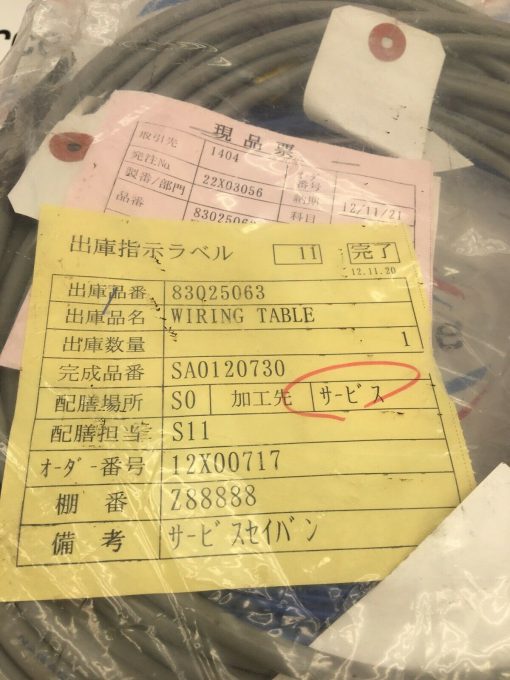 現品票
取引先 1404
発注No
製番/部門 22X03056 納期 12/11/21
品番 83025063 科目
出庫指示ラベル 11 完了
12.11.20
出庫品番 83025063
出庫品名 WIRING TABLE
出庫数量 1
完成品番 SA0120730
配膳場所 S0 加工先 サービス
配膳担当 S11
オーダー番号 12X00717
棚番 Z88888
備考 サービスセイバン